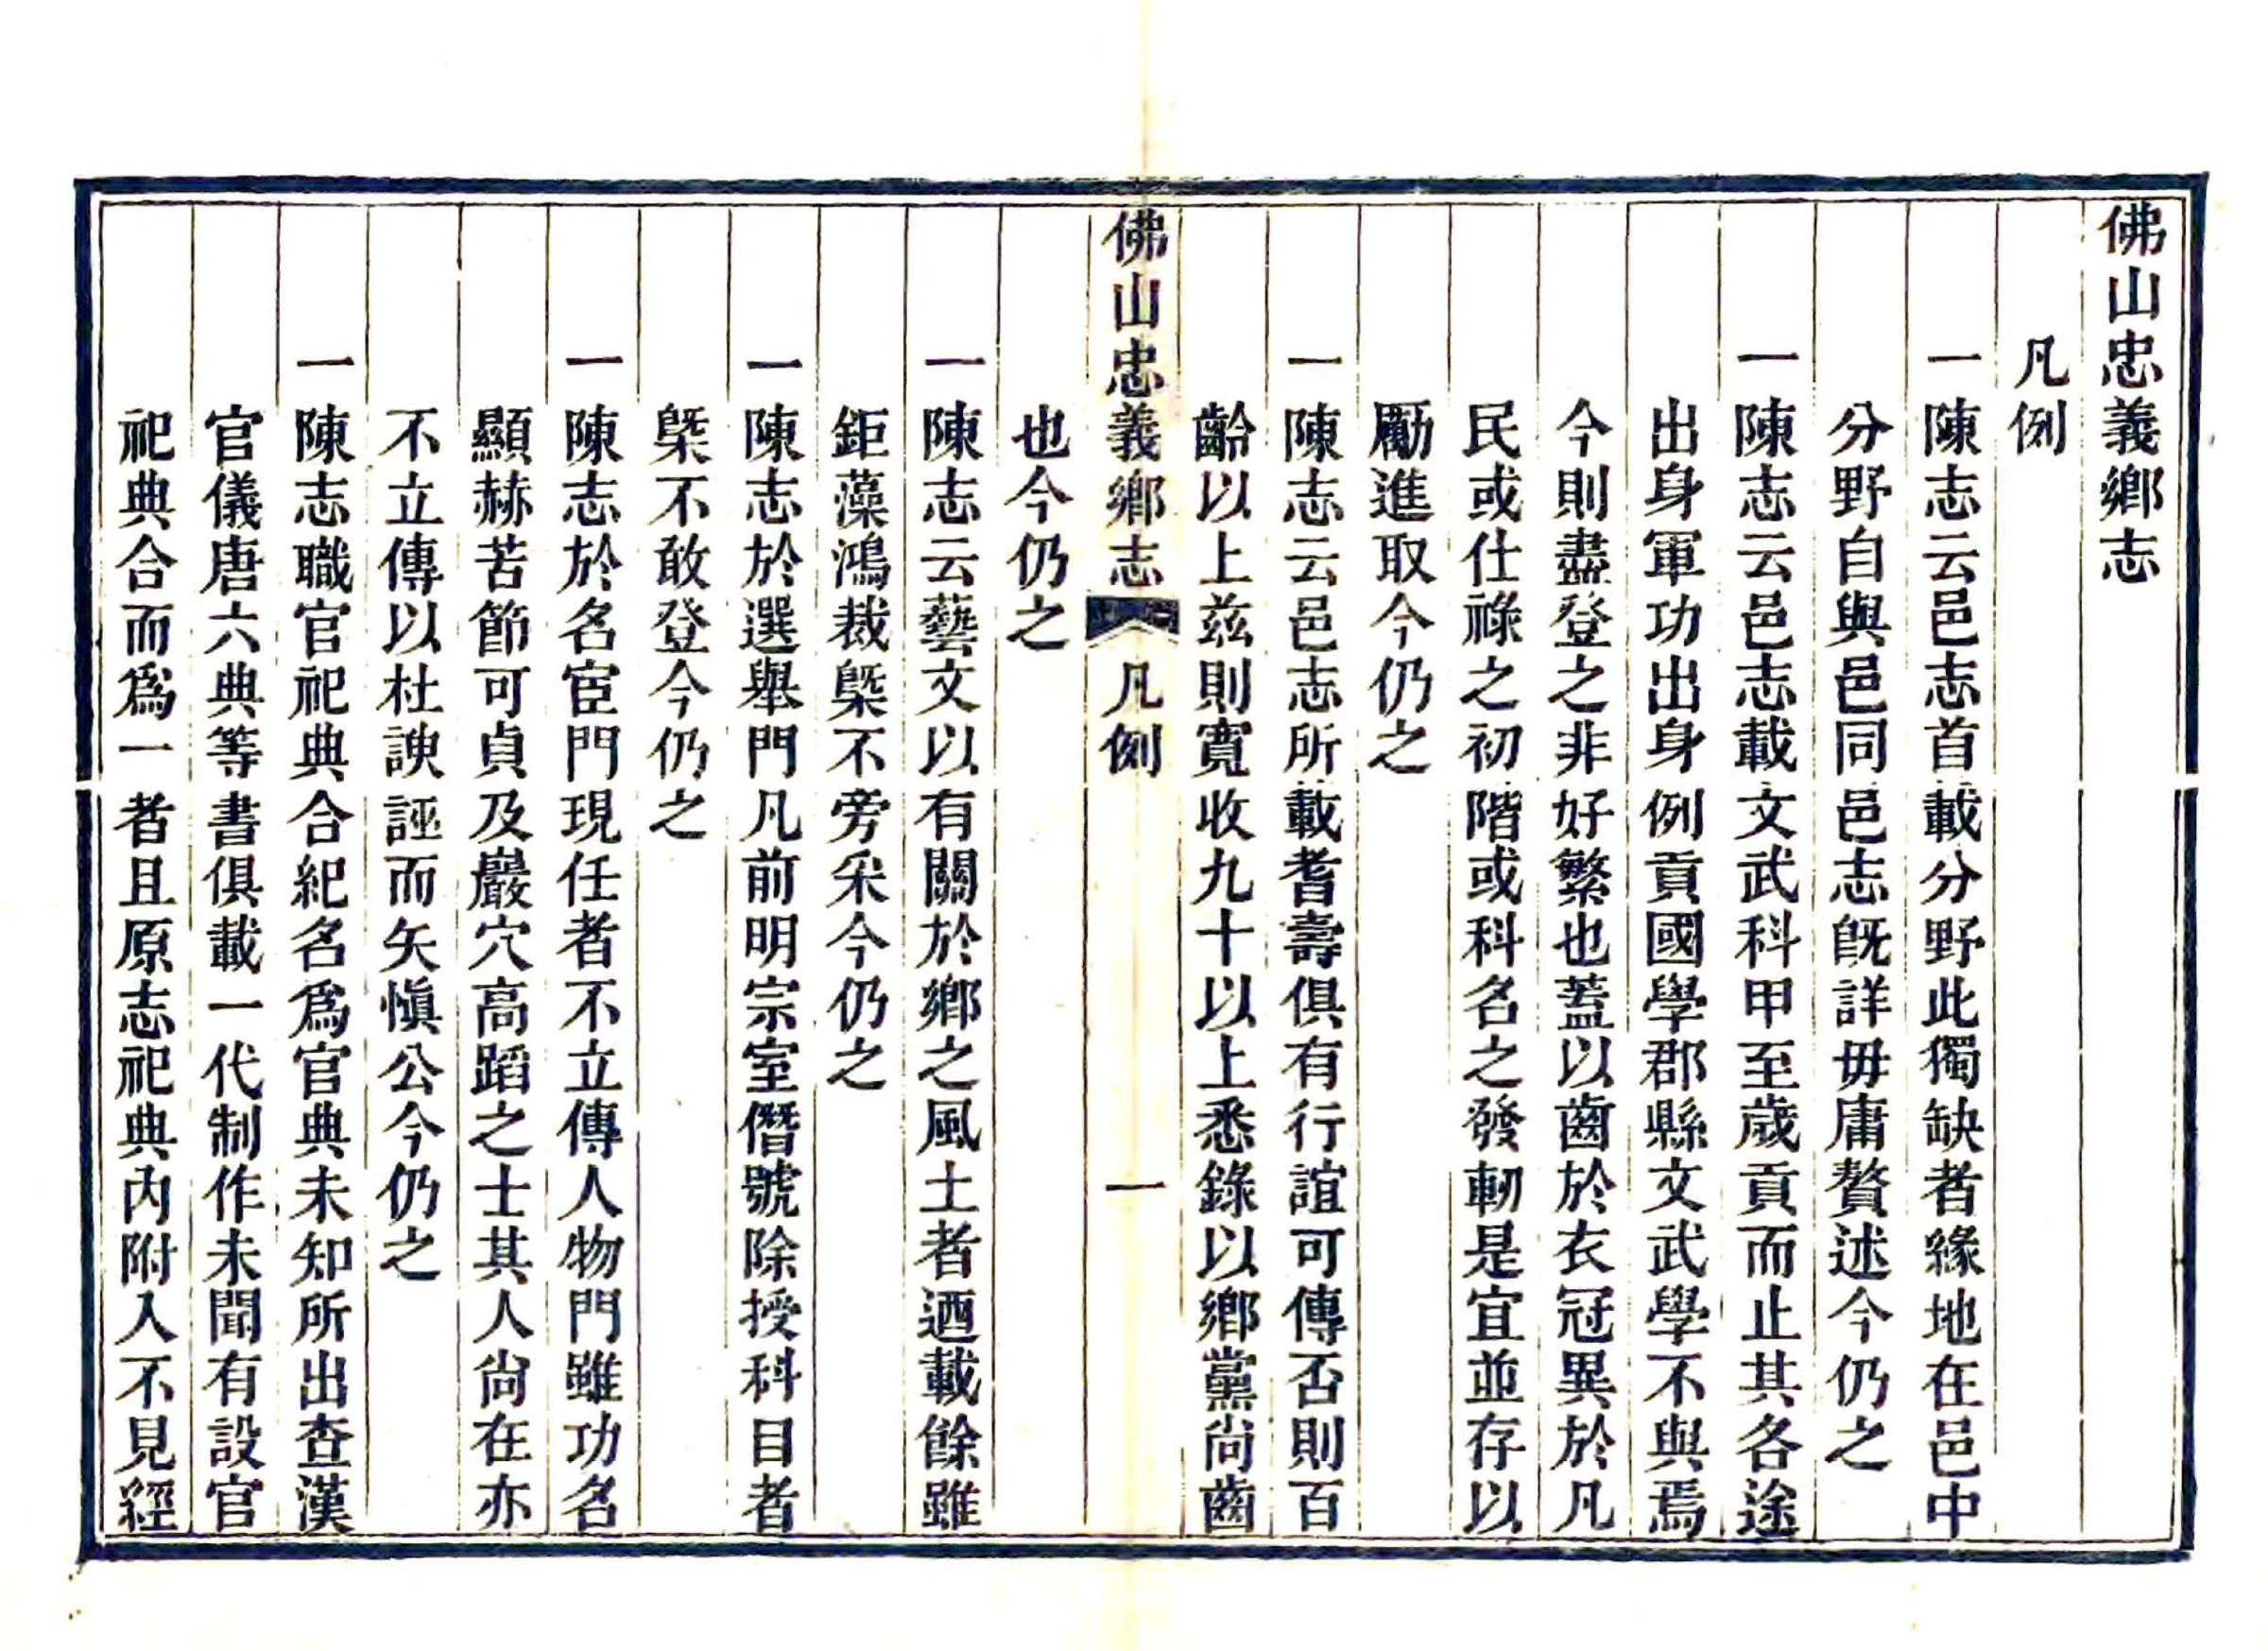 佛山忠義鄉志
凡例
一陳志云邑志首載分野此獨缺者緣地在邑中
分野自與邑同邑志旣詳毋庸贅述今仍之
一陳志云邑志載文武科甲至歲貢而止其各途
出身軍功出身例貢國學郡縣文武學不與焉
今則盡登之非好繁也蓋以齒於衣冠異於凡
民或仕祿之初階或科名之發軔是宜並存以
勵進取今仍之
一陳志云邑志所載耆壽俱有行誼可傳否則百
齡以上兹則寬收九十以上悉錄以鄉黨尚齒
佛山忠義鄉志 凡例 一
也今仍之
一陳志云藝文以有關於鄉之風土者迺載餘雖
鉅藻鴻裁槩不旁采今仍之
一陳志於選舉門凡前明宗室僭號除授科目者
槩不敢登今仍之
一陳志於名宦門現任者不立傳人物門雖功名
顯赫苦節可貞及巖穴高蹈之士其人尚在亦
不立傳以杜諛誣而矢愼公今仍之
一陳志職官祀典合紀名爲官典未知所出查漢
官儀唐六典等書俱載一代制作未聞有設官
祀典合而爲一者且原志祀典內附入不見經